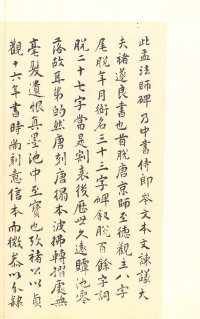 此孟法師碑乃中書侍郎岑文本文諫議大
夫褚遂良書也首脫唐京師至德觀主八字
尾脫年月銜名三十三字碑敘脫百餘字詞
脫二十七字當是剝裂後歷世久遠殘池零
落故耳第的然唐刻唐搨本波拂轉摺處無
毫髮遺恨真墨池中至寶也攷褚公以貞
觀十六年書時尚刻意信本而微參以分隸